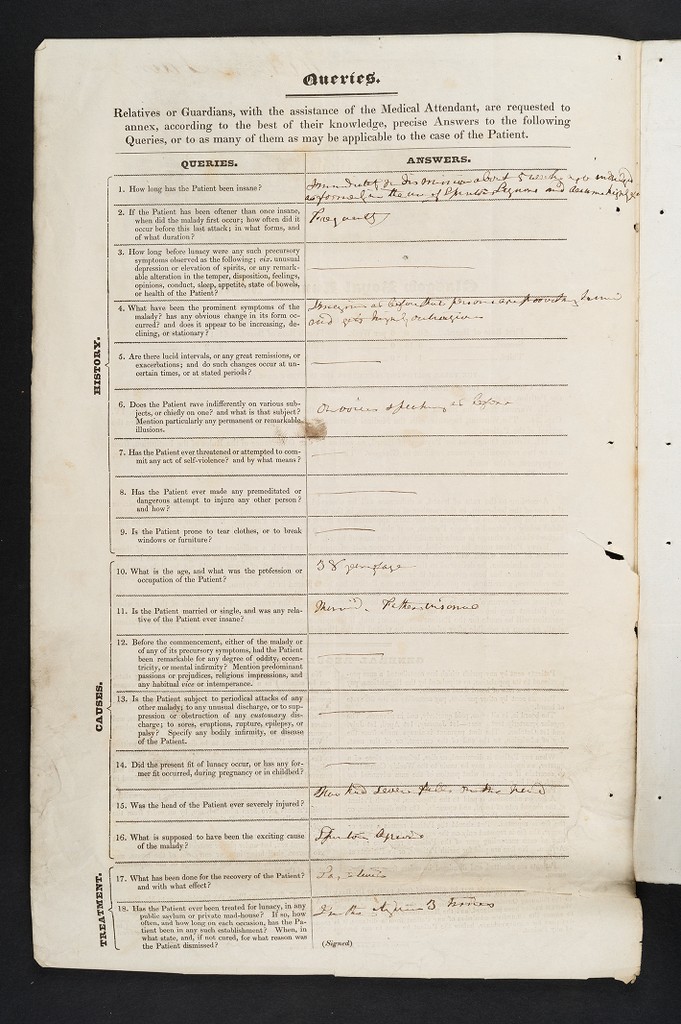 Queries.
Relatives or Guardians, with the assistance of the Medical Attendant, are requested to
annex, according to the best of their knowledge, precise Answers to the following
Queries, or to as many of them as may be applicable to the case of the Patient.
QUERIES.
ANSWERS.
HISTORY.
1. How long has the Patient been insane?
about 5 weeks
as formerly in the use of and
2. If the Patient has been oftener than once insane,
when did the malady first occur; how often did it
occur before this last attack; in what forms, and
of what duration?
Frequently
3. How long before lunacy were any such precursory
symptoms observed as the following; viz. unusual
depression or elevation of spirits, or any remark-
able alteration in the temper, disposition, feelings,
opinions, conduct, sleep, appetite, state of bowels,
or health of the Patient?
4. What have been the prominent symptoms of the
malady? has any obvious change in its form oc-
curred? and does it appear to be increasing, de-
clining, or stationary?
Imagines as before that persons are
and gets highly outrageous
5. Are there lucid intervals, or any great remissions, or
exacerbations; and do such changes occur at un-
certain times, or at stated periods?
6. Does the Patient rave indifferently on various sub-
jects, or chiefly on one? and what is that subject?
Mention particularly any permanent or remarkable
illusions.
On voices speaking as before
7. Has the Patient ever threatened or attempted to com-
mit any act of self-violence? and by what means?
8. Has the Patient ever made any premeditated or
dangerous attempt to injure any other person?
and how?
9. Is the Patient prone to tear clothes, or to break
windows or furniture?
CAUSES.
10. What is the age, and what was the profession or
occupation of the Patient?
38 years of age
11. Is the Patient married or single, and was any rela-
tive of the Patient ever insane?
Married. Father was insane
12. Before the commencement, either of the malady or
of any of its precursory symptoms, had the Patient
been remarkable for any degree of oddity, eccen-
tricity, or mental infirmity? Mention predominant
passions or prejudices, religious impressions, and
any habitual vice or intemperance.
13. Is the Patient subject to periodical attacks of any
other malady; to any unusual discharge, or to sup-
pression or obstruction of any customary dis-
charge; to sores, eruptions, rupture, epilepsy, or
palsy? Specify any bodily infirmity, or disease
of the Patient.
14. Did the present fit of lunacy occur, or has any for-
mer fit occurred, during pregnancy or in childbed?
15. Was the head of the Patient ever severely injured?
had severe falls on the head
16. What is supposed to have been the exciting cause
of the malady?
TREATMENT.
17. What has been done for the recovery of the Patient?
and with what effect?
18. Has the Patient ever been treated for lunacy, in any
public asylum or private mad-house? If so, how
often, and how long on each occasion, has the Pa-
tient been in any such establishment? When, in
what state, and, if not cured, for what reason was
the Patient dismissed?
In the Asylum 3 times
(Signed)